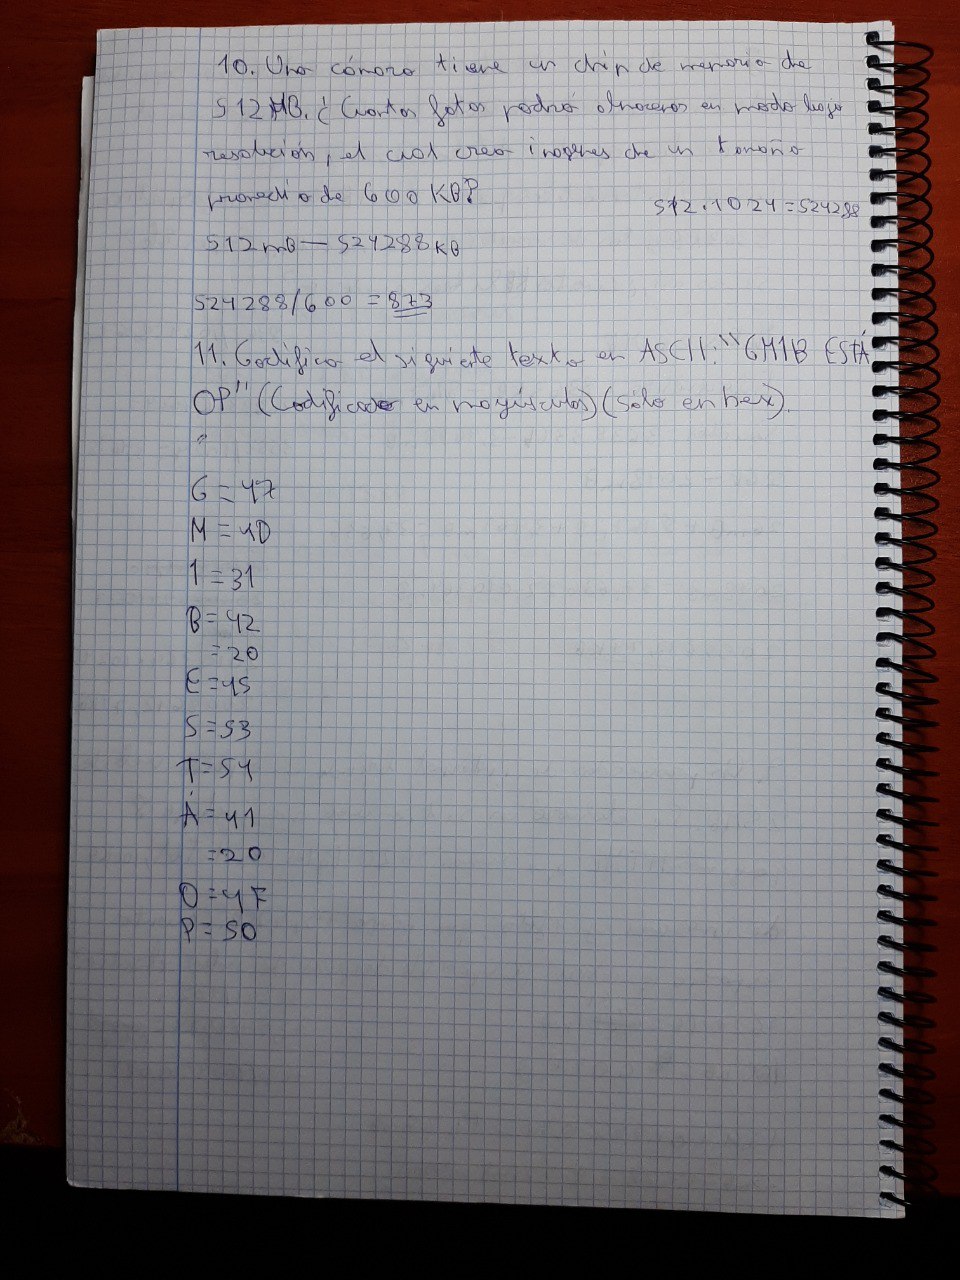 10. Una cámara tiene un chip de memoria de
512MB. ¿Cuantas fotos podrá almacenar en modo baja
resolución, el cual crea imágenes de un tamaño
promedio de 600 KB?
512.1024=524288
512mB — 524288KB
524288/600 = 873
11. Codifica el siguiente texto en ASCII: "GM1B ESTÁ
OP" (Codificado en mayúsculas) (Sólo en hex).
"
G = 47
M = 4D
1 = 31
B = 42
= 20
E = 45
S = 53
T = 54
Á = 41
= 20
O = 4F
P = 50